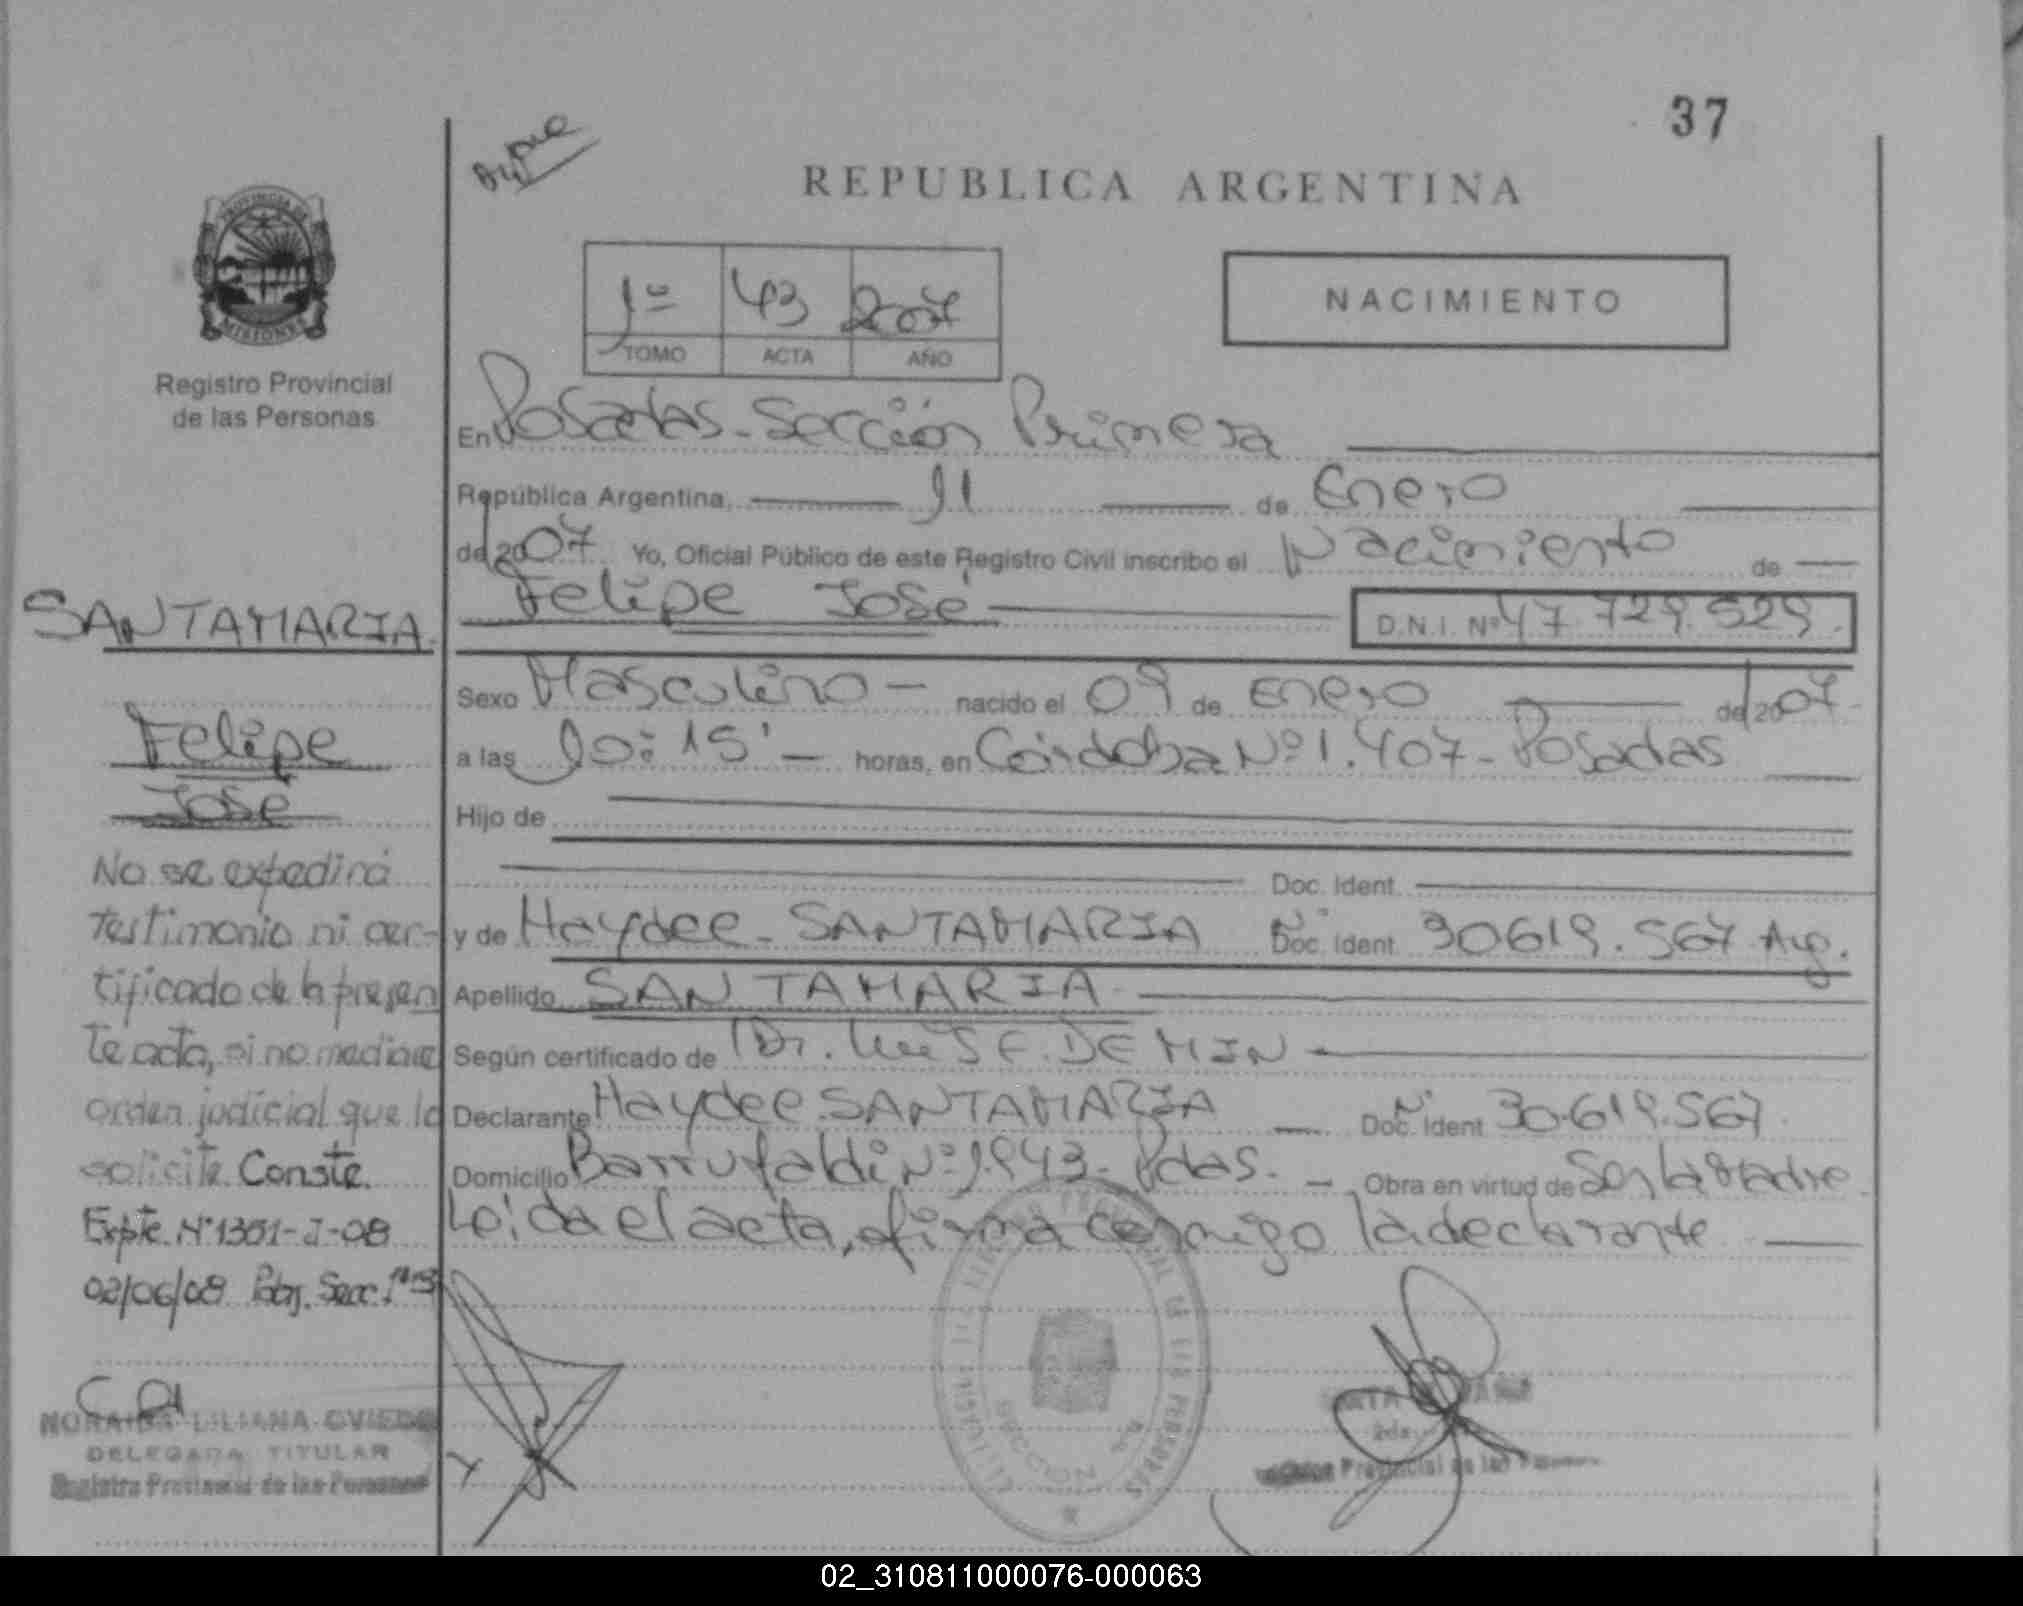 37
REPUBLICA ARGENTINA
PROVINCIA DE
MISIONES
Registro Provincial
de las Personas
1º 43 2007
TOMO ACTA AÑO
NACIMIENTO
En Posadas - Sección Primera
República Argentina, 11 de Enero
de 2007 Yo, Oficial Público de este Registro Civil inscribo el Nacimiento de
Felipe José D.N.I. Nº 47.729.529.
Sexo Masculino - nacido el 09 de Enero de 2007
a las 10:15' - horas, en Córdoba Nº 1.407 - Posadas
Hijo de
Doc. Ident.
y de Haydee - SANTAMARIA Nº Doc. Ident. 30619.567 Arg.
Apellido SANTAMARIA
Según certificado de Dr. Luis E. DE MIN -
Declarante Haydee SANTAMARIA - Nº Doc. Ident 30.619.567
Domicilio Barrufaldi Nº 1943 - Pdas. - Obra en virtud de Ser la Madre
Leída el acta, firma conmigo la declarante
SANTAMARIA.
Felipe
José
No se expedirá
testimonio ni cer-
tificado de la presen
te acta, si no mediare
orden judicial que lo
solicite. Conste.
Expte. Nº 1301-J-08
02/06/08 Secc. 1ª
NORAIDA LILIANA OVIEDO
DELEGADA TITULAR
Registro Provincial de las Personas
SECCION
Provincial de las
02_310811000076-000063